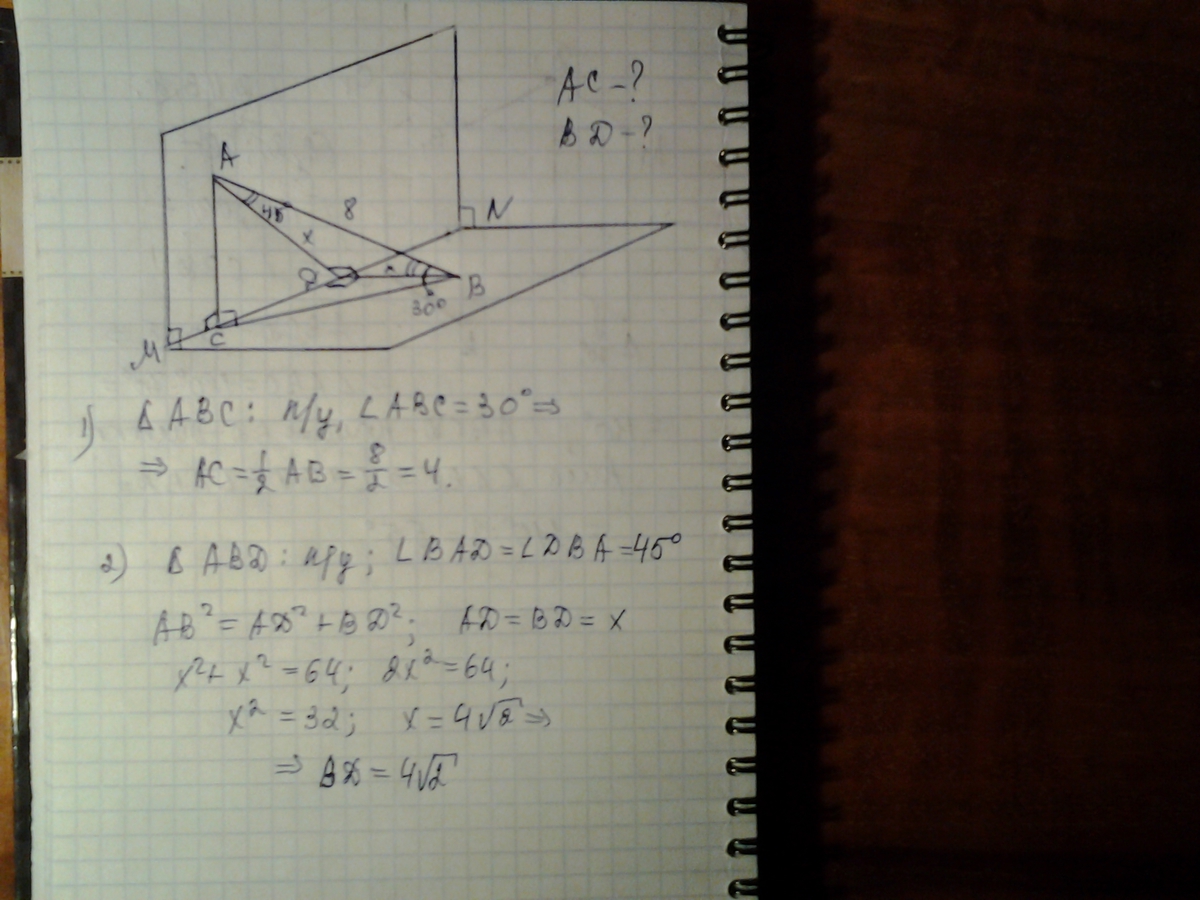 AC - ?
BD - ?
A
45
8
x
N
D
x
B
30°
M
C
1) Δ ABC: п/у, ∠ABC = 30° ⇒
⇒ AC = 1/2 AB = 8/2 = 4.
2) Δ ABD: п/у; ∠BAD = ∠DBA = 45°
AB² = AD² + BD²; AD = BD = x
x² + x² = 64; 2x² = 64;
x² = 32; x = 4√2 ⇒
⇒ BD = 4√2